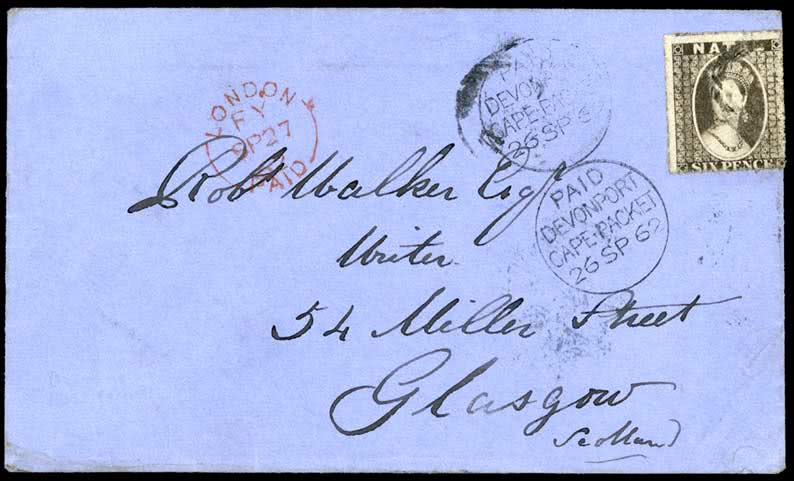 NATAL
SIX PENCE
PAID
DEVONPORT
CAPE-PACKET
26 SP 62
LONDON
FY
SP 27
PAID
PAID
DEVONPORT
CAPE-PACKET
26 SP 62
Robt Walker Esqr
Writer
54 Miller Street
Glasgow
Scotland